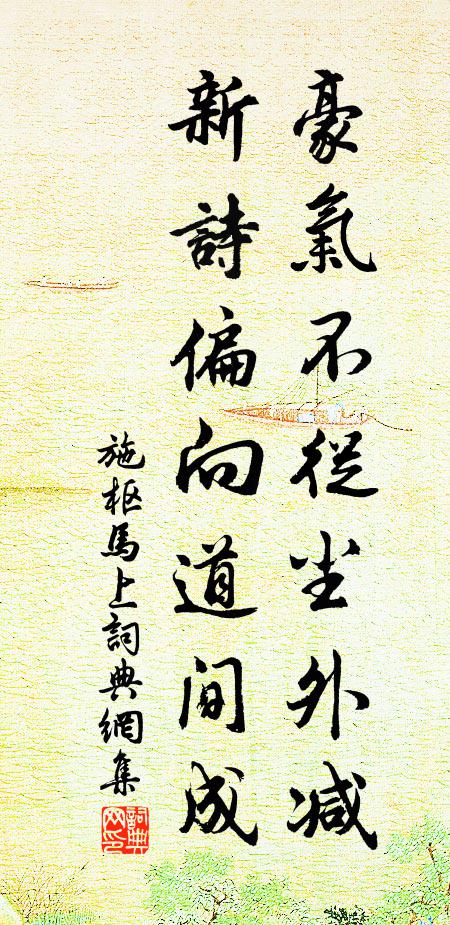 豪氣不從尘外减
新詩偏向道间成
施枢馬上詞典網集
詞典网印